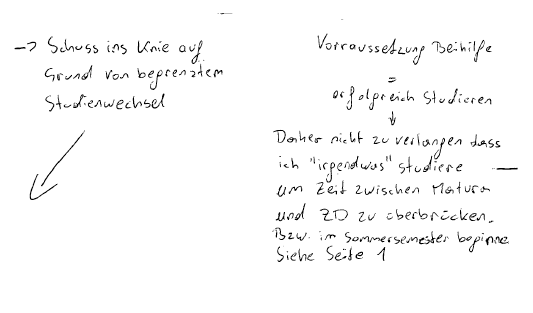 -> Schuss ins Knie auf
Grund von begrenztem
Studienwechsel
Vorraussetzung Beihilfe
=
erfolgreich Studieren
↓
Daher nicht zu verlangen dass
ich "irgendwas" studiere
um Zeit zwischen Matura
und ZD zu überbrücken.
Bzw. im Sommersemester beginne
Siehe Seite 1